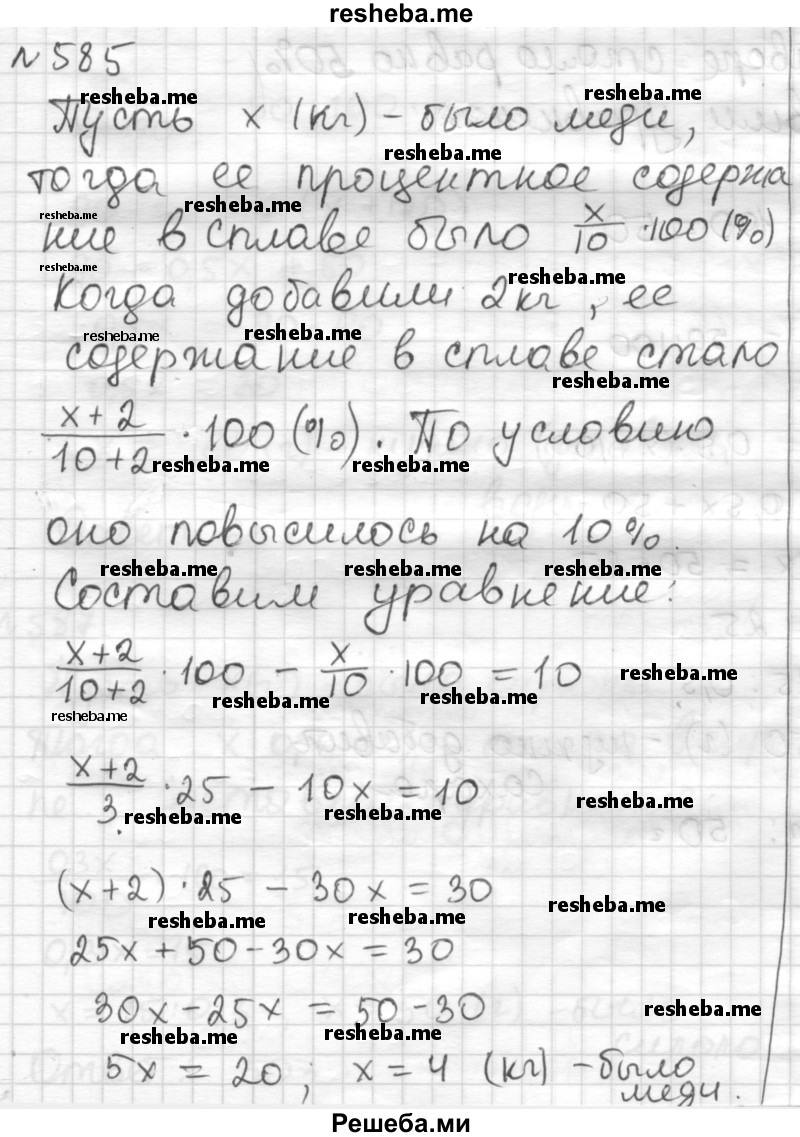 resheba.me
№ 585
resheba.me resheba.me
Пусть x (кг) - было меди,
resheba.me
тогда ее процентное содержа
resheba.me resheba.me
ние в сплаве было x/10 · 100 (%)
resheba.me resheba.me
Когда добавили 2кг, ее
resheba.me resheba.me
содержание в сплаве стало
resheba.me
(x+2)/(10+2) · 100 (%). По условию
resheba.me resheba.me
оно повысилось на 10%.
resheba.me resheba.me resheba.me
Составим уравнение:
(x+2)/(10+2) · 100 - x/10 · 100 = 10 resheba.me
resheba.me resheba.me resheba.me
(x+2)/3 · 25 - 10x = 10 resheba.me
resheba.me resheba.me
(x+2) · 25 - 30x = 30 resheba.me
resheba.me resheba.me
25x + 50 - 30x = 30
30x - 25x = 50 - 30 resheba.me
resheba.me resheba.me
5x = 20 ; x = 4 (кг) - было
меди.
Решеба.ми